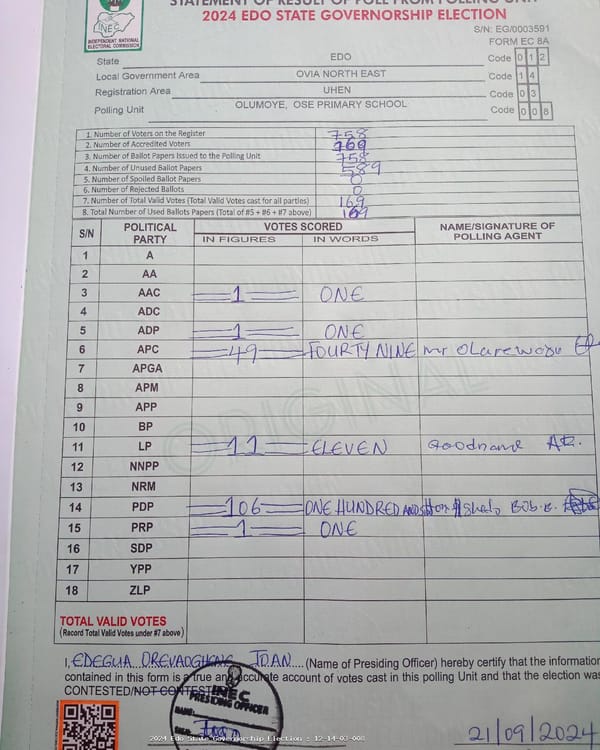 STATEMENT OF RESULT OF POLL FROM POLLING UNIT
2024 EDO STATE GOVERNORSHIP ELECTION
INEC
INDEPENDENT NATIONAL
ELECTORAL COMMISSION
S/N: EG/0003591
FORM EC 8A
State EDO Code 0 1 2
Local Government Area OVIA NORTH EAST Code 1 4
Registration Area UHEN Code 0 3
Polling Unit OLUMOYE, OSE PRIMARY SCHOOL Code 0 0 8
1. Number of Voters on the Register 758
2. Number of Accredited Voters 169
3. Number of Ballot Papers Issued to the Polling Unit 758
4. Number of Unused Ballot Papers 589
5. Number of Spoiled Ballot Papers 0
6. Number of Rejected Ballots 0
7. Number of Total Valid Votes (Total Valid Votes cast for all parties) 169
8. Total Number of Used Ballots Papers (Total of #5 + #6 + #7 above) 169
S/N POLITICAL PARTY VOTES SCORED NAME/SIGNATURE OF POLLING AGENT
IN FIGURES IN WORDS
1 A
2 AA
3 AAC 1 ONE
4 ADC
5 ADP 1 ONE
6 APC 49 FOURTY NINE Mr Olarewoju
7 APGA
8 APM
9 APP
10 BP
11 LP 11 ELEVEN Goodname
12 NNPP
13 NRM
14 PDP 106 ONE HUNDRED AND
15 PRP 1 ONE
16 SDP
17 YPP
18 ZLP
ORIGINAL
TOTAL VALID VOTES
(Record Total Valid Votes under #7 above)
I, EDEGUA JOAN (Name of Presiding Officer) hereby certify that the information
contained in this form is a true and accurate account of votes cast in this polling Unit and that the election was
CONTESTED/NOT CONTESTED
INEC
PRESIDING OFFICER
NAME:
21/09/2024
2024 Edo State Governorship Election : 12-14-03-008